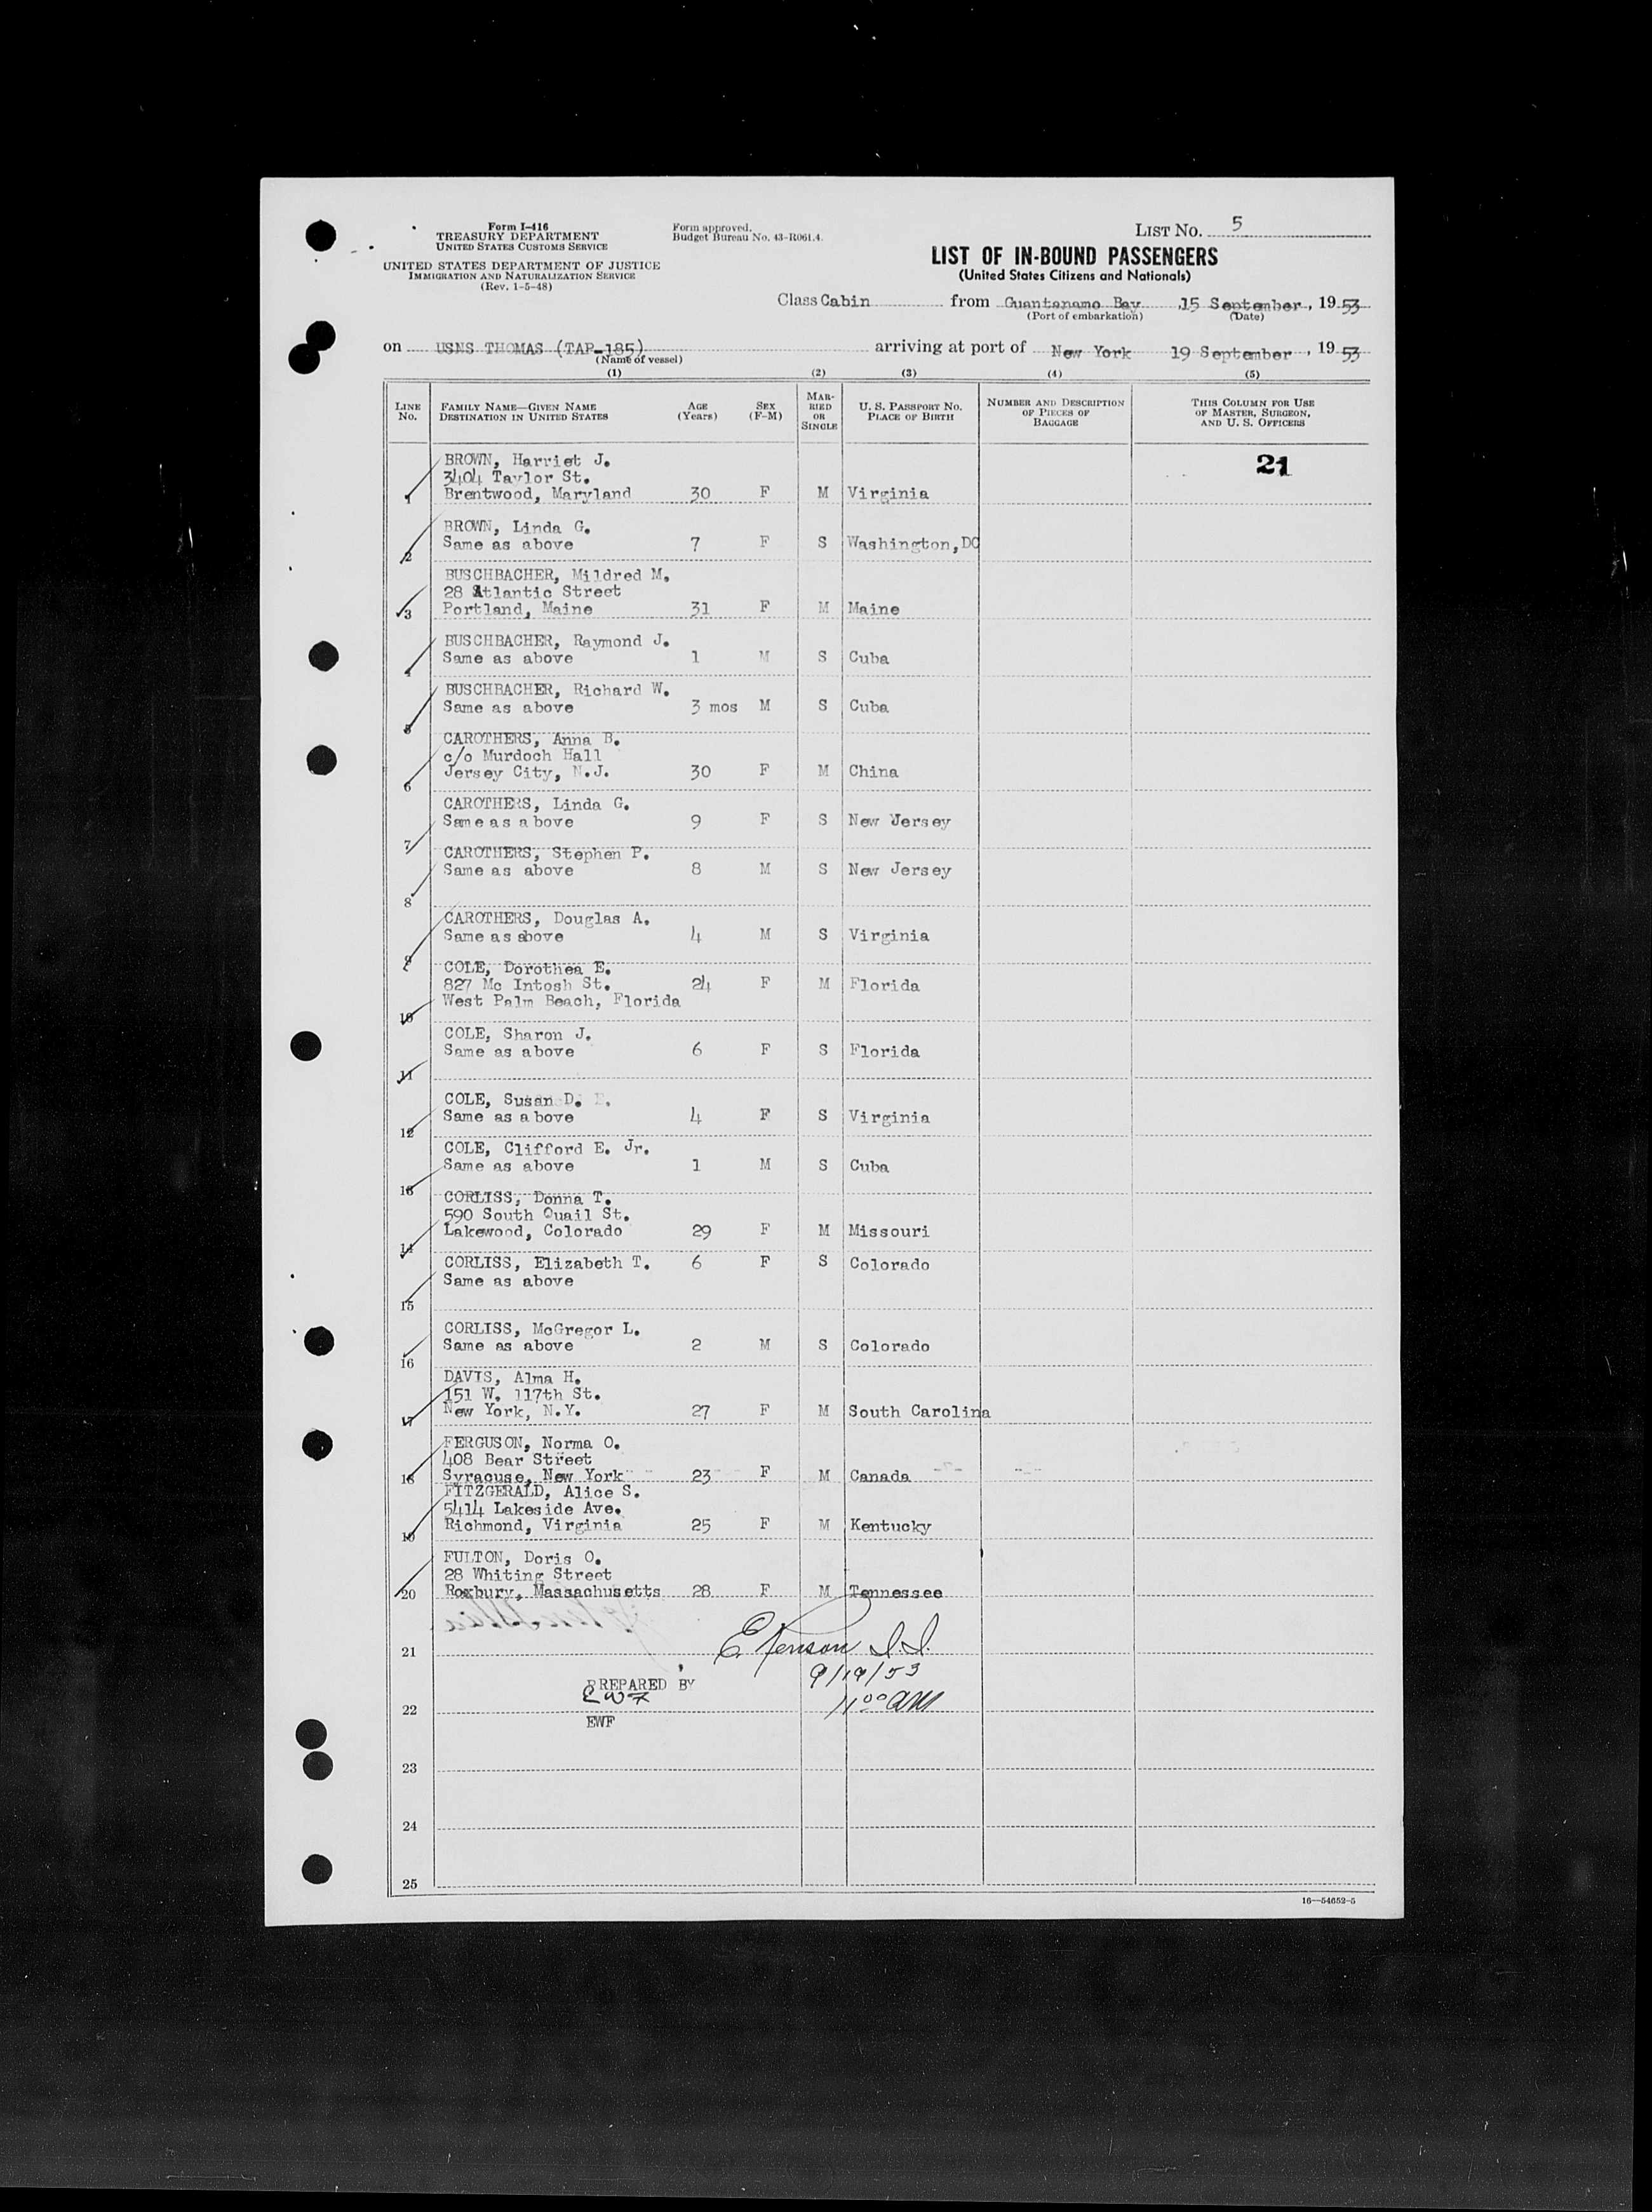 Form I-416
TREASURY DEPARTMENT
UNITED STATES CUSTOMS SERVICE
UNITED STATES DEPARTMENT OF JUSTICE
IMMIGRATION AND NATURALIZATION SERVICE
(Rev. 1-5-48)
Form approved.
Budget Bureau No. 43-R061.4.
LIST No. 5
LIST OF IN-BOUND PASSENGERS
(United States Citizens and Nationals)
Class Cabin from Guantanamo Bay, 15 September, 1953
(Port of embarkation) (Date)
on USNS THOMAS (TAP-185) arriving at port of New York 19 September, 1953
(Name of vessel)
(1) (2) (3) (4) (5)
LINE No. FAMILY NAME—GIVEN NAME DESTINATION IN UNITED STATES AGE (Years) SEX (F-M) MARRIED OR SINGLE U. S. PASSPORT No. PLACE OF BIRTH NUMBER AND DESCRIPTION OF PIECES OF BAGGAGE THIS COLUMN FOR USE OF MASTER, SURGEON, AND U. S. OFFICERS
21
BROWN, Harriet J.
3404 Taylor St.
1 Brentwood, Maryland 30 F M Virginia
BROWN, Linda G.
2 Same as above 7 F S Washington,DC
BUSCHBACHER, Mildred M.
28 Atlantic Street
3 Portland, Maine 31 F M Maine
BUSCHBACHER, Raymond J.
4 Same as above 1 M S Cuba
BUSCHBACHER, Richard W.
5 Same as above 3 mos M S Cuba
CAROTHERS, Anna B.
c/o Murdoch Hall
6 Jersey City, N.J. 30 F M China
CAROTHERS, Linda G.
7 Same as above 9 F S New Jersey
CAROTHERS, Stephen P.
8 Same as above 8 M S New Jersey
CAROTHERS, Douglas A.
9 Same as above 4 M S Virginia
COLE, Dorothea E.
827 Mc Intosh St. 24 F M Florida
10 West Palm Beach, Florida
COLE, Sharon J.
11 Same as above 6 F S Florida
COLE, Susan D. E.
12 Same as above 4 F S Virginia
COLE, Clifford E. Jr.
13 Same as above 1 M S Cuba
CORLISS, Donna T.
590 South Quail St.
14 Lakewood, Colorado 29 F M Missouri
CORLISS, Elizabeth T. 6 F S Colorado
15 Same as above
CORLISS, McGregor L.
16 Same as above 2 M S Colorado
DAVIS, Alma H.
151 W. 117th St.
17 New York, N.Y. 27 F M South Carolina
FERGUSON, Norma O.
408 Bear Street
18 Syracuse, New York 23 F M Canada
FITZGERALD, Alice S.
5414 Lakeside Ave.
19 Richmond, Virginia 25 F M Kentucky
FULTON, Doris O.
28 Whiting Street
20 Roxbury, Massachusetts 28 F M Tennessee
21
9/19/53
PREPARED BY
EWF
11 00 AM
22
EWF
23
24
25
16—54652-5